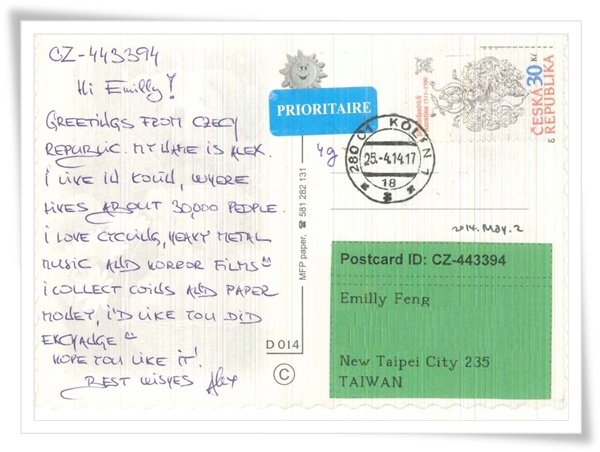 CZ-443394
Hi Emilly!
GREETINGS FROM CZECY
REPUBLIC. MY NAME IS ALEX.
I LIVE IN KOLÍN, WHERE
LIVES ABOUT 30,000 PEOPLE.
I LOVE CYCLING, HEAVY METAL
MUSIC AND HORROR FILMS
I COLLECT COINS AND PAPER
MONEY, I'D LIKE YOU DID
EXCHANGE
HOPE YOU LIKE IT!
BEST WISHES Alex
PRIORITAIRE
4g
30 Kč
ČESKÁ
REPUBLIKA
280 01 KOLÍN 1
25.-4.14.17
18
MFP paper, ☎ 581 282 131
D 014
©
2014. May. 2
Postcard ID: CZ-443394
Emilly Feng
New Taipei City 235
TAIWAN